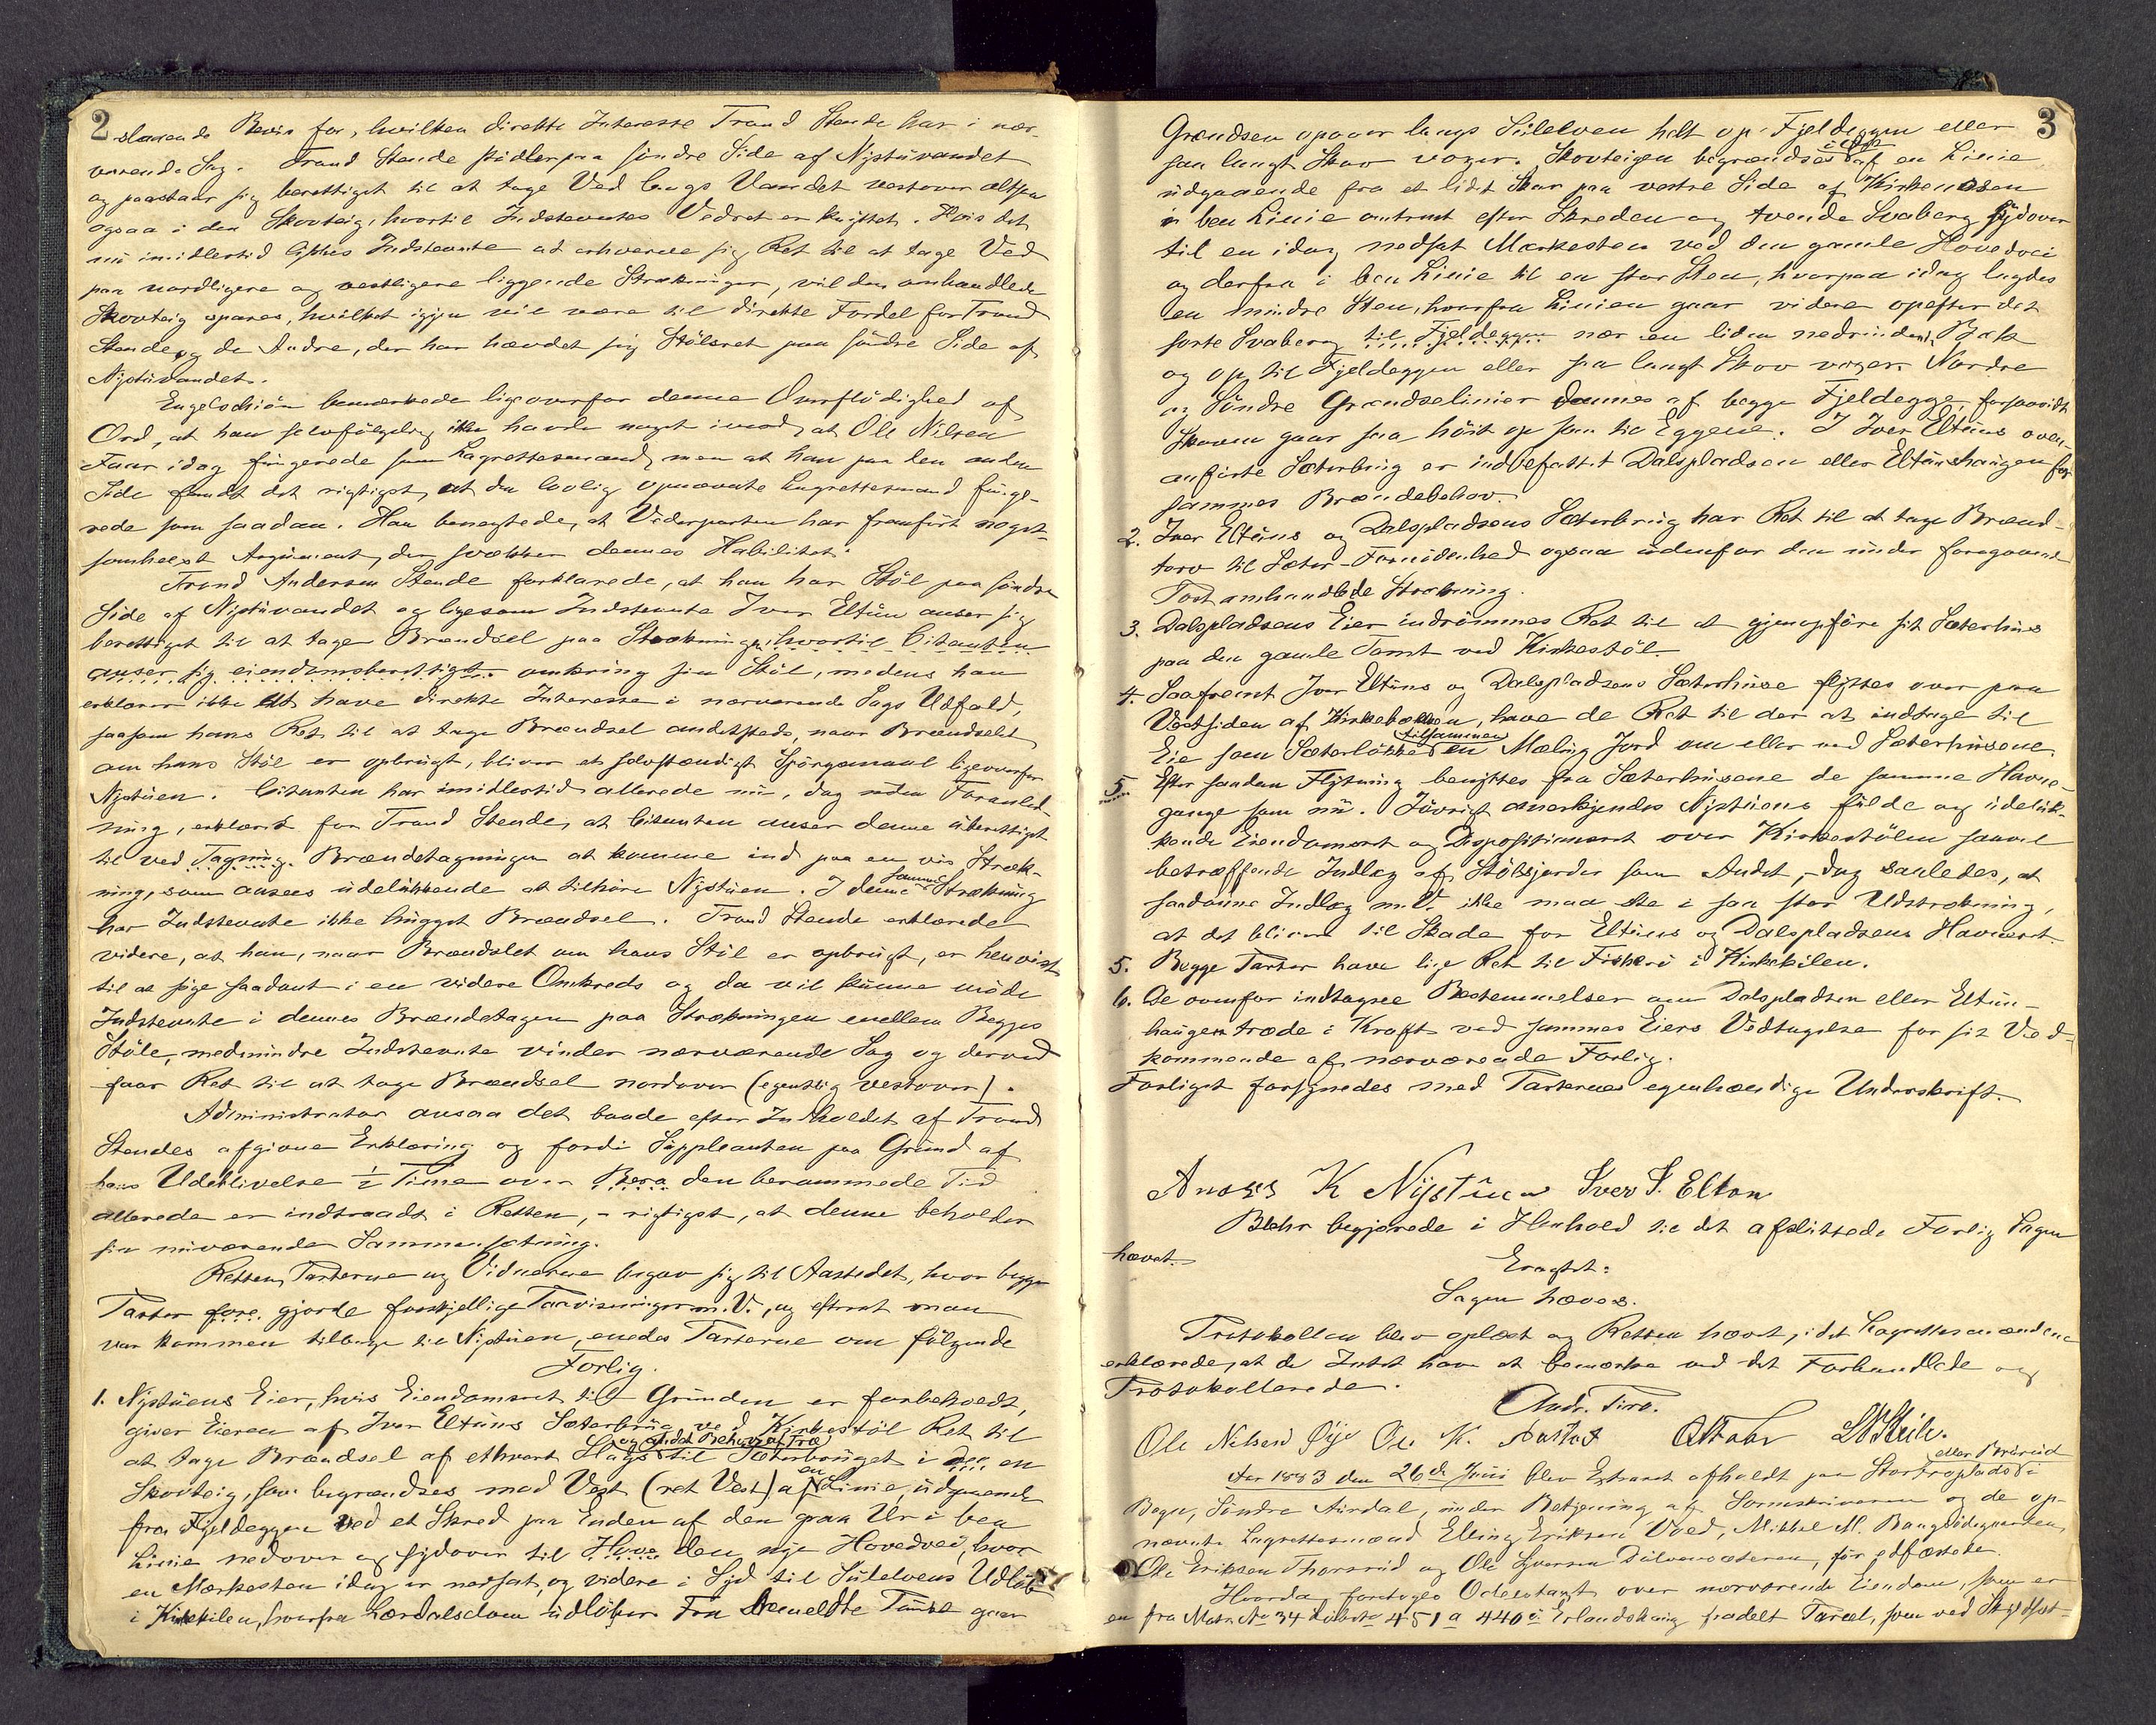 2
slaaende Bevis for, hvilken direkte Interesse Trond Stende har i nær-
værende Sag. Trond Stende stödler paa söndre Side af Nystuvandet
og paastaar sig berettiget til at tage Ved langs Vandet vestover altsaa
ogsaa i den Skovteig, hvortil Indstevntes Vedret er knyttet. Hvis det
nu imidlertid lykkes Indstevnte at erhverve sig Ret til at tage Ved
paa nordligere og vestligere liggende Strækninger, vil den omhandlede
Skovteig spares, hvilket igjen vil være til direkte Fordel for Trond
Stende og de Andre, der har hævdet sig Stölsret paa söndre Side af
Nystuvandet.
Engelschiön bemærkede ligeoverfor denne Overflödighed af
Ord, at han selvfölgelig ikke havde noget imod, at Ole Nilsen
idag fungerede som Lagrettesmand, men at han paa den anden
Side fandt det rigtigst, at den lovlig opnævnte Lagrettesmand funge-
rede som saadan. Han benegtede, at Vederparten har fremfört noget-
somhelst Argument, der svækker dennes Habilitet.
Trond Andersen Stende forklarede, at han har Stöl paa söndre
Side af Nystuvandet og ligesom Indstevnte Iver Eltun anser sig
berettiget til at tage Brændsel paa Strækningen hvortil Citanten
anser sig eiendomsberettiget omkring sin Stöl, medens han
erklærer ikke at have direkte Interesse i nærværende Sags Udfald,
saasom hans Ret til at tage Brændsel andetsteds, naar Brændselet
om hans Stöl er opbrugt, bliver et selvstændigt Spörgsmaal ligeoverfor
Nystuen. Citanten har imidlertid allerede nu, dog uden Foranled-
ning, erklæret for Trond Stende, at Citanten anser denne uberettiget
til ved Tagning Brændetagningen at komme ind paa en vis Stræk-
ning, som ansees udelukkende at tilhöre Nystuen. I denne samme Strækning
har Indstevnte ikke hugget Brændsel. Trond Stende erklærede
videre, at han, naar Brændslet om hans Stöl er opbrugt, er henvist
til at söge saadant i en videre Omkreds og da vil kunne möde
Indstevnte i dennes Brændetagen paa Strækningen mellem Begges
Stöle, medmindre Indstevnte vinder nærværende Sag og derved
faar Ret til at tage Brændsel nordover (egentlig vestover).
Administrator ansaa det baade efter Indholdet af Trond
Stendes afgivne Erklæring og fordi Suppleanten paa Grund af
hans Udeblivelse ½ Time over den berammede Tid
allerede er indtraadt i Retten, - rigtigst, at denne beholder
sin nuværende Sammensætning.
Retten, Parterne og Vidnerne begav sig til Aastedet, hvor begge
Parter fore gjorde forskjellige Paavisninger m. V., og efterat man
var kommen tilbage til Nystuen, enedes Parterne om fölgende
Forlig.
1. Nystuens Eier, hvis Eiendomsret til Grunden er forbeholdt,
giver Eieren af Iver Eltuns Sæterbrug ved Kirkestöl Ret til
at tage Brændsel af ethvert Slags og andet Behov af Træ til Sæterbruget i den en
Skovteig, som begrændses mod Vest (ret Vest) af en Linie, udgaaende
fra Fjeldeggen ved et Skred paa Enden af den graa Ur i ben
Linie nedover og sydover til Hove den nye Hovedvei, hvor
en Mærkesten idag er nedsat, og videre i Syd til Sulelvens Udlöb
i Kirkekilen, hvorfra Lærdalselven udlöber. Fra bemeldte Punkt gaar
3
Grændsen opover langs Sulelven helt op til Fjeldeggen eller
saa langt Skov voxer. Skovteigen begrændses i Öst af en Linie
udgaaende fra et lidet Skar paa vestre Side af Kirkenosen
i ben Linie omtrent efter Skreden og tvende Svaberg sydover
til en idag nedsat Mærkesten ved den gamle Hovedvei
og derfra i ben Linie til en stor Sten, hvorpaa idag lagdes
en mindre Sten, hvorfra Linien gaar videre opefter det
sorte Svaberg til Fjeldeggen nær en liden nedrindende Bæk
og op til Fjeldeggen eller saa langt Skov voxer. Nordre
og Söndre Grændselinier dannes af begge Fjeldegge, forsaavidt
Skoven gaar saa höit op som til Eggene. I Iver Eltuns oven-
anförte Sæterbrug er indbefattet Dalspladsen eller Eltunshaugen for
sammes Brændebehov.
2. Iver Eltuns og Dalspladsens Sæterbrug har Ret til at tage Brænd-
torv til Sæter-Fornödenhed ogsaa udenfor den under foregaaende
Post omhandlede Strækning.
3. Dalspladsens Eier indrömmes Ret til at gjenopföre sit Sæterhus
paa den gamle Tomt ved Kirkestöl.
4. Saafremt Iver Eltuns og Dalspladsens Sæterhuse flyttes over paa
Vestsiden af Kirkebækken, have de Ret til der at indtage til
Eie som Sæterlökke tilsammen en Mæling Jord om eller ved Sæterhusene.
5. Efter saadan Flytning benyttes fra Sæterhusene de samme Havne-
gange som nu. Iövrigt anerkjendes Nystuens fulde og udeluk-
kende Eiendomsret og Dispositionsret over Kirkestölen saavel
betræffende Indlæg af Stölsjorder som Andet, - dog saaledes, at
saadanne Indlæg m. V. ikke maa ske i saa stor Udstrækning,
at det bliver til Skade for Eltuns og Dalspladsens Havneret.
5. Begge Parter have lige Ret til Fiskeri i Kirkekilen.
6. De ovenfor indtagne Bestemmelser om Dalspladsen eller Eltun-
haugen træde i Kraft ved sammes Eiers Vedtagelse for sit Ved-
kommende af nærværende Forlig.
Forliget forsynedes med Parternes egenhændige Underskrift.
K Nystuen Iver S. Elton
begjærede i Henhold til det afsluttede Forlig Sagen
hævet.
Eragtet:
Sagen hæves.
Protokollen blev oplæst og Retten hævet, idet Lagrettesmændene
erklærede, at de Intet have at bemærke ved det Forhandlede og
Protokollerede.
Ole Nilsen Öye Ole K.
Aar 1883 den 26de Juni blev Extraret afholdt paa eller Brörud i
Begn, Söndre Aurdal, under Betjening af Sorenskriveren og de op-
nævnte Lagrettesmænd Elling Eriksen Vold, Mikkel M.
Ole Eriksen Thorsrud og Ole Syversen för edfæstede.
Hvorda foretoges Odelstaxt over nærværende Eiendom, som er
en fra Matr No 34 Löbeno 451a 440 i Erlandshaug fradelt Parcel, som ved Skyldsæt-